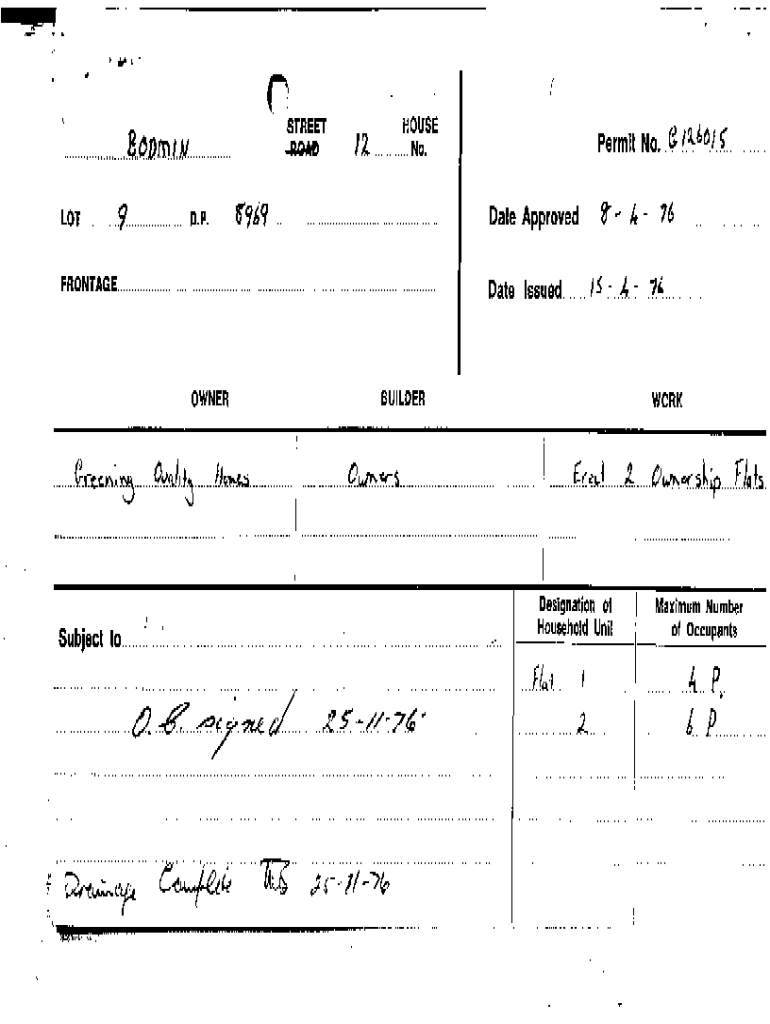 BODMIN STREET ROAD 12 HOUSE No.
Permit No. G126015
LOT 9 D.P. 8969
Date Approved 8-4-76
FRONTAGE
Date Issued 15-4-76
OWNER BUILDER WORK
Greening Quality Homes Owners Erect 2 Ownership Flats
Designation of Household Unit Maximum Number of Occupants
Subject to
Flat 1 4 P.
O.B. signed 25-11-76 2 6 P
Drainage Complete 25-11-76